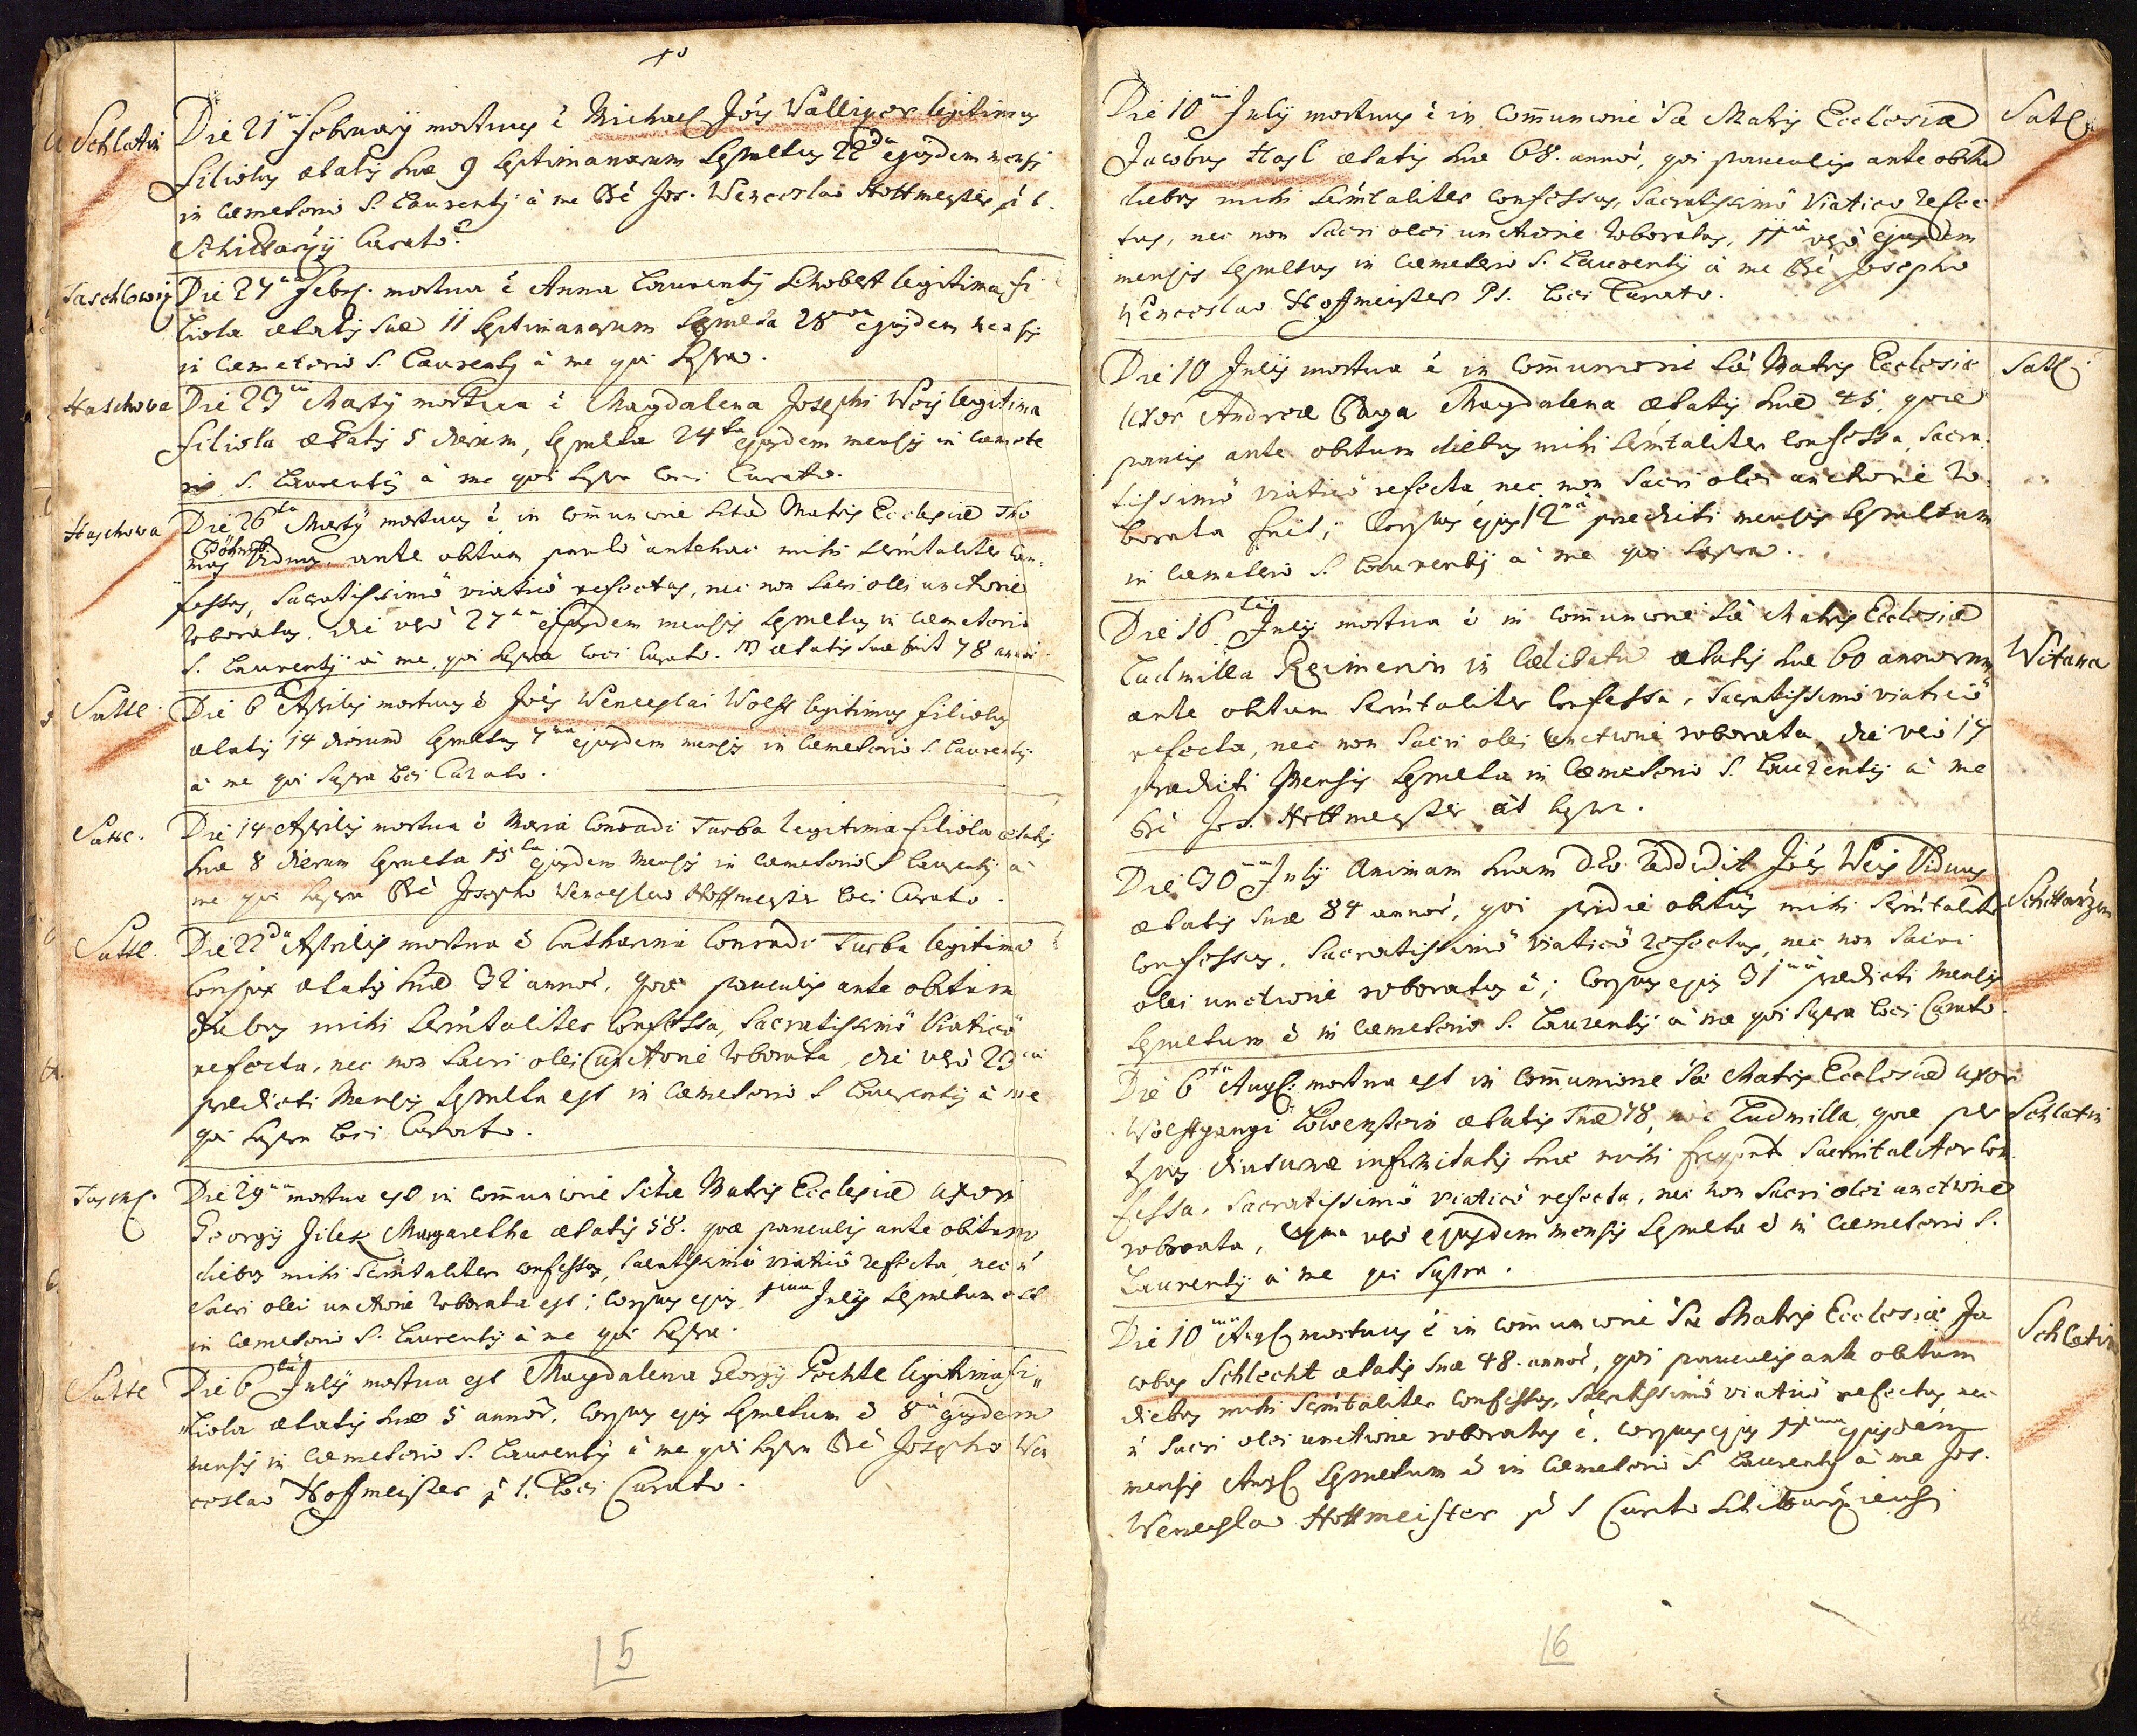 Schlatin
Die 21 February mortuus ē Michael Jōs Walliger legitimus
filiolus ætatis suæ 9 septimanarum sepultus 22da ejusdem mensis
in cæmeterio S. Laurentÿ à me Prē Jos. Wenceslao Hoffmeister p. t.
Schittarzÿ Curato.
Taschlowitz
Die 27 Febr. mortua ē Anna Laurentÿ Schobert legitima fi
liola ætatis suæ 11 septimanarum sepulta 28 ejusdem mensis
in cæmeterio S. Laurentÿ à me qui supra.
Haschowa
Die 23 Martÿ mortua ē Magdalena Josephi Weis legitima
filiola ætatis 5 dierum, sepulta 24ta ejusdem mensis in cæmete
rio S. Laurentÿ à me qui supra loci Curato.
Haschowa
Die 26ta Martÿ mortuus ē in com̄unione Stæ Matris Ecclesiæ Tho
mas Viduus, ante obitum paulò antehac mihi Scrm̄taliter con-
fessus, Sacratissimô viaticô refectus, nec non Sacri olei unctione
roboratus. die verò 27 ejusdem mensis sepultus in cæmeterio
S. Laurentÿ à me, qui supra loci Curato. ætatis suæ fuit 78 anni
Sattl.
Die 6 Aprilis mortuus ē Joēs Wenceslai Wolff legitimus filiolus
ætatis 14 dierum sepultus 7 ejusdem mensis in cæmeterio S. Laurentÿ
à me qui supra loci Curato.
Sattl.
Die 14 Aprilis mortua ē Maria Conradi Turba legitima filiola ætatis
suæ 8 dierum sepulta 15ta ejusdem mensis in cæmeterio S Laurentÿ à
me qui supra Prē Josepho Wenceslao Hoffmeister loci Curato.
Sattl.
Die 22da Aprilis mortua ē Catharina Conradi Turba legitima
conjux ætatis suæ 32 annor̄, quæ pauculis ante obitum
diebus mihi Scrm̄taliter confessa, Sacratissimô Viaticô
refecta, nec non Sacri olei unctione roborata, die verò 23
prædicti Mensis sepulta est in cæmeterio S Laurentÿ à me
qui supra loci Curato.
Taschl.
Die 29 mortua est in com̄unione Stæ Matris Ecclesiæ uxor
Georgÿ Jilek Margaretha ætatis 58. quæ pauculis ante obitum
diebus mihi Scrm̄taliter confessa, Sacratissimô viaticô refecta, nec n̄
Sacri olei unctione roborata est; corpus ejus 1 Julÿ sepultum est
in cæmeterio S. Laurentÿ à me qui supra.
Sattl
Die 6 Julÿ mortua est Magdalena Georgÿ Pochtl legitima fi
liola ætatis suæ 5 annor̄, corpus ejus sepultum ē 8 ejusdem
mensis in cæmeterio S. Laurentÿ à me qui supra Prē Josepho Wen
ceslao Hoffmeister p. t. Loci Curato.
5
Die 10 Julÿ mortuus ē in com̄unione Sæ Matris Ecclesiæ
Sattl
Jacobus Hasl ætatis suæ 68. annor̄, qui pauculis ante obitū
diebus mihi Scrm̄taliter confessus, Sacratissimô Viatico refec
tus, nec non Sacri olei unctione roboratus, 11 verò ejusdem
mensis sepultus in cæmeterio S. Laurentÿ à me Prē Josepho
Wenceslao Hoffmeister p. t. loci Curato.
Die 10 Julÿ mortua ē in com̄unione Sæ Matris Ecclesiæ
Sattl
uxor Andreæ Magdalena ætatis suæ 45, quæ
paucis ante obitum diebus mihi Scrm̄taliter confessa, Sacra
tissimô viaticô refecta, nec non Sacri olei unctione ro
borata fuit; Corpus ejus 12 prædicti mensis sepultum
in cæmeterio S. Laurentÿ à me qui supra.
Die 16 Julÿ mortua ē in com̄unione Sæ Matris Ecclesiæ
Witana
Ludmilla in cælibatu ætatis suæ 60 annorum
ante obitum Scrm̄taliter confessa, Sacratissimô viaticô
refecta, nec non Sacri olei unctione roborata, die verò 17
prædicti Mensis sepulta in Cæmeterio S. Laurentÿ à me
Prē Jos. Hoffmeister ut supra.
Die 30 Julÿ Animam suam Deo reddidit Joēs Weis Viduus
Schittarzen
ætatis suæ 84 annor̄, qui pridie obitus mihi Scrm̄taliter
confessus, Sacratissimô viaticô refectus, nec non Sacri
olei unctione roboratus ē; Corpus ejus 31 prædicti Mensis
sepultum ē in cæmeterio S. Laurentÿ à me qui supra loci Curato.
Die 6ta Aug. mortua est in com̄unione Sæ Matris Ecclesiæ uxor
Schlatin
Wolfgangi Löwenstein ætatis suæ 78, Ludmilla, quæ per
diuturnæ infirmitatis suæ mihi Sacrm̄taliter con
fessa, Sacratissimô viaticô refecta, nec non Sacri olei unctione
roborata, verò ejusdem mensis sepulta ē in cæmeterio S.
Laurentÿ à me qui supra.
Die 10 Aug. mortuus ē in com̄unione Sæ Matris Ecclesiæ Ja
Schlatin
cobus Schlecht ætatis suæ 48. annor̄, qui pauculis ante obitum
diebus mihi Scrm̄taliter confessus, Sacratissimô viaticô refectus, nec
n̄ Sacri olei unctione roboratus ē. corpus ejus 11 ejusdem
mensis Aug. sepultum ē in Cæmeterio S. Laurentÿ à me Jos.
Wenceslao Hoffmeister p. t. Curato Schittarziensi
6